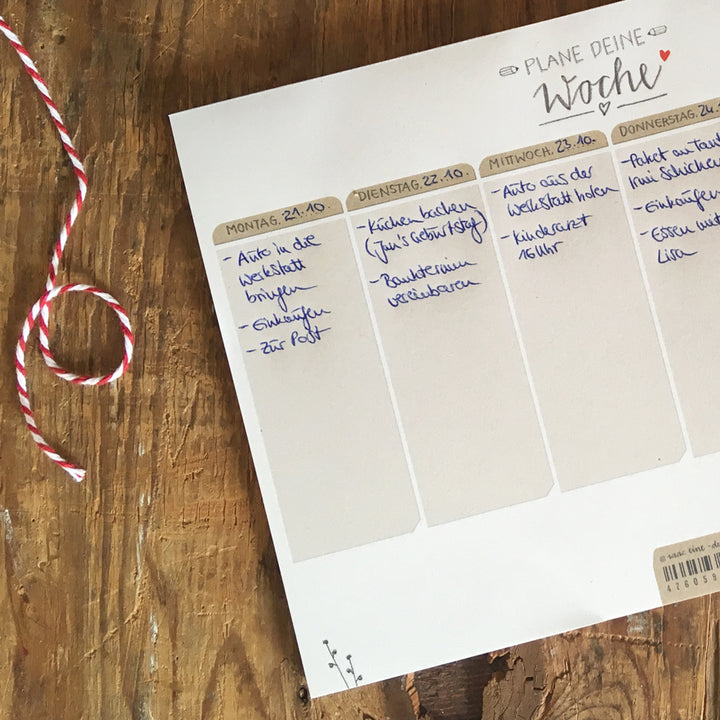 PLANE DEINE
Woche
MONTAG, 21.10.
- Auto in die
Werkstatt
bringen
- Einkaufen
- Zur Post
DIENSTAG, 22.10.
- Kuchen backen
(Jan's Geburtstag)
- Banktermin
vereinbaren
MITTWOCH, 23.10.
- Auto aus der
Werkstatt holen
- Kinderarzt
16 Uhr
DONNERSTAG, 24.
- Paket an Tant
schicken
- Einkaufen
- Essen mit
Lisa